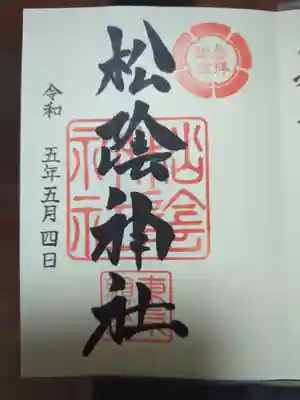 奉拝
松陰神社
令和 五年五月四日
松陰神社